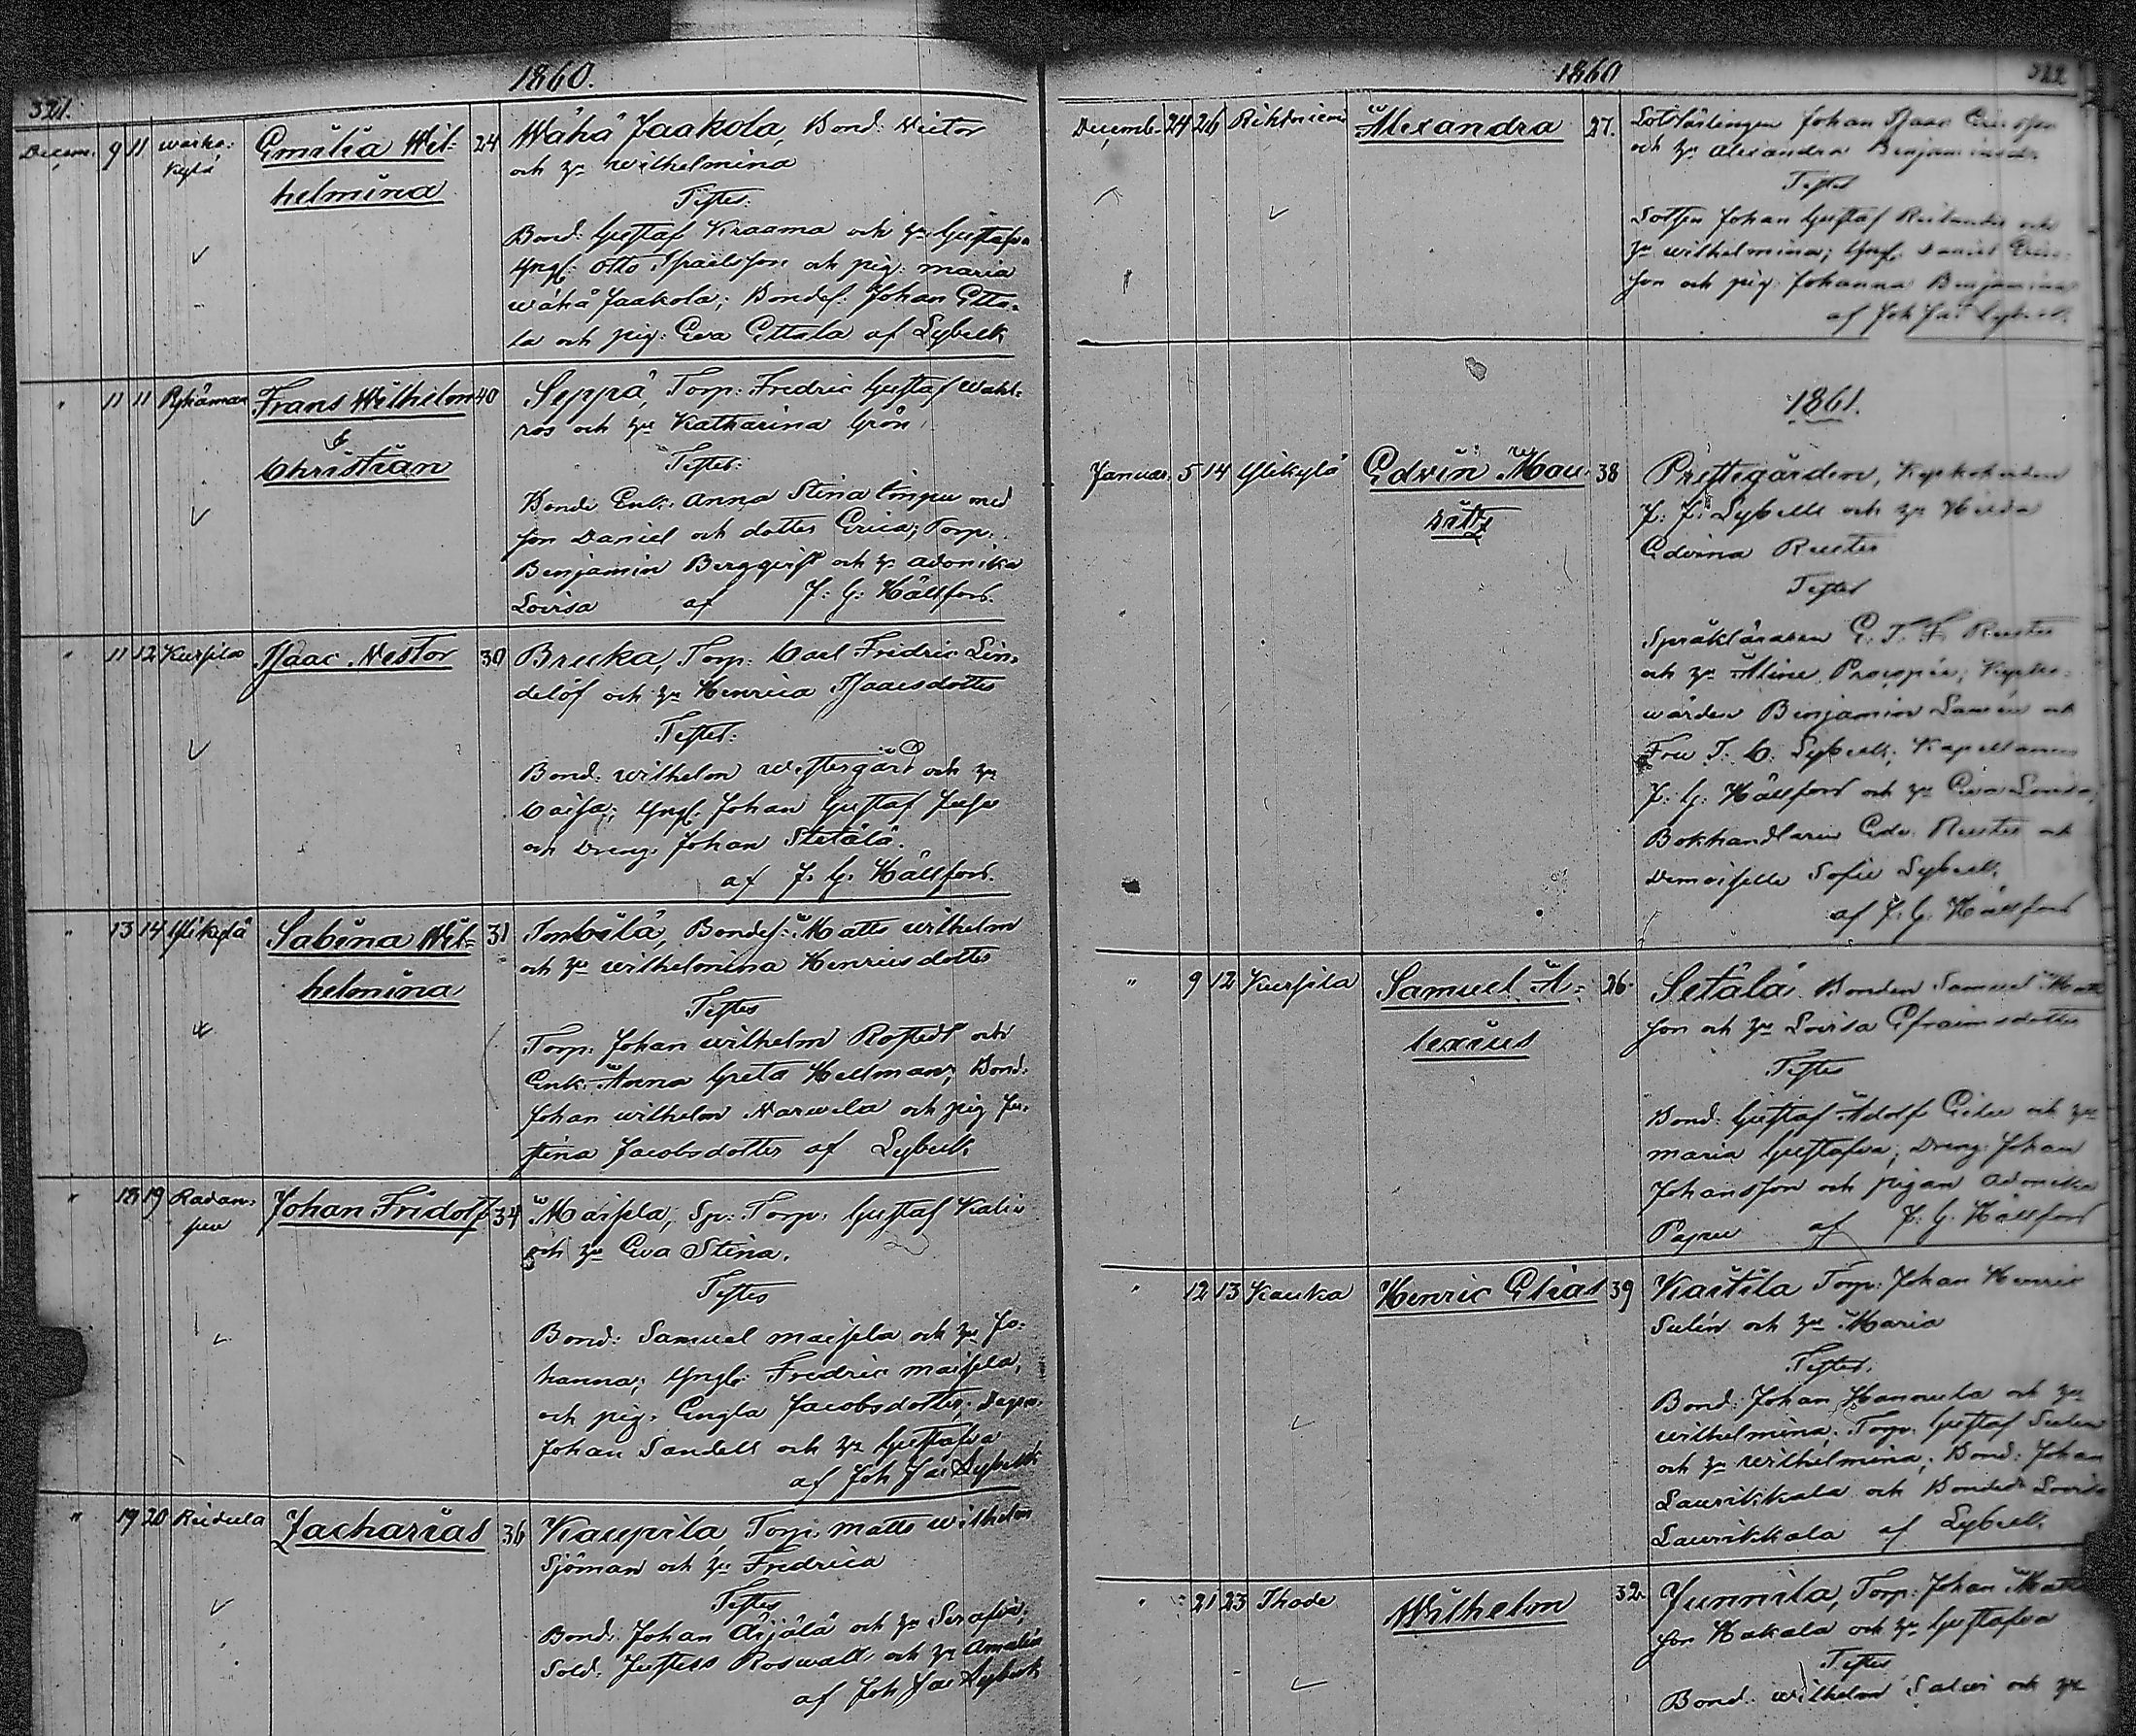 1860.
321.
Decem. 9 11 warha: Emilia Wil: 24 Wähä Jaakola, Bond: Victor
kylä helmina och hu Wilhelmina
Testes:
Bond: Gustaf Kraama och hu Gustafva
Yngl: Otto Israelsson och pig: Maria
wähä Jaakola; Bondes: Johan Etta-
la och pig: Eva Ettala af Lybeck
" 11 11 Frans Wilhelm 40 Seppä, Torp: Fredric Gustaf Wahl-
ros och hu Katharina Grön
& Christian
Testes:
Bonde Enk: Anna Stina med
son Daniel och dotter Erica; Torp:
Benjamin Bergqvist och hu Adonika
Lovisa af J: G: Hällfors.
" 11 12 Kursila Isaac Nestor 30 Breska, Torp: Carl Fredric Lin-
delöf och hu Henrica Isaacsdotter
Testes:
Bond: Wilhelm Westergård och hu
Caisa; Yngl: Johan Gustaf
och Dreng: Johan Stetälä.
af J. G. Hällfors.
" 13 14 Ylikylä Sabina Wil- 31 Tombila, Bondes: Matts Wilhelm
helmina och hu Wilhelmina Henricsdotter
Testes
Torp: Johan Wilhelm Rostedt och
Enk: Anna Greta Hellman; Bond:
Johan Wilhelm Narvela och pig Ju-
stina Jacobsdotter af Lybeck
" 18 19 Radan- Johan Fridolf 34 Maisela, Sp: Torp: Gustaf Kalin
suu och hu Eva Stina.
Testes
Bond: Samuel Maisela och hu Jo-
hanna; Yngl: Fredric Maisela,
och pig: Engla Jacobsdotter;
Johan Sandell och hu Gustafva
af Joh Jac Lybeck
" 19 20 Ruskila Zacharias 36 Kaupila, Torp: Matts Wilhelm
Sjöman och hu Fredrica
Testes
Bond: Johan Äijälä och hu Serafia;
Sold: Justus Roswall och hu Amalia
af Joh Jac Lybeck
1860
322
Decemb. 24 26 Rihtniemi Alexandra 27. Lotslärlingen Johan Isaac Ericsson
och hu Alexandra Benjaminsdr
Testes
Lotsen Johan Gustaf och
hu Wilhelmina; Yngl: Daniel Eric-
son och pig: Johanna Benjamins
af Joh Jac Lybeck
1861.
Januar. 5 14 Ylikylä Edvin Mau- 38 Prestegården, Kyrkoherden
ritz J: J: Lybeck och hu Hilda
Edvina Reuter
Testes
Språkläraren E. T. F. Reuter
och hu Aline Procopée; Kyrko-
wärden Benjamin och
Fru T. C. Lybeck; Kapellanen
J: G: Hällfors och hu Eva Lovisa;
Bokhandlaren Edv. Reuter och
Demoiselle Sofie Lybeck,
af J: G. Hällfors
" 9 12 Kursila Samuel A- 26. Setälä, Bonden Samuel Matts
lexius son och hu Lovisa Efraimsdotter
Testes
Bond: Gustaf Adolf och hu
Maria Gustafva; Dreng: Johan
Johansson och pigan Adonika
Papu af J: G. Hällfors
" 12 13 Kauka Henric Elias 39 Kaitila Torp: Johan Henric
Sulin och hu Maria
Testes.
Bond: Johan Hannula och hu
Wilhelmina; Torp: Gustaf Sulin
och hu Wilhelmina; Bond: Johan
Laurikkala och Bondedr Lovisa
Laurikkala af Lybeck
" 21 23 Ihode Wilhelm 32. Junnila, Torp: Johan Matts
son Hakala och hu Gustafva
Testes
Bond: Wilhelm Salwi och hu